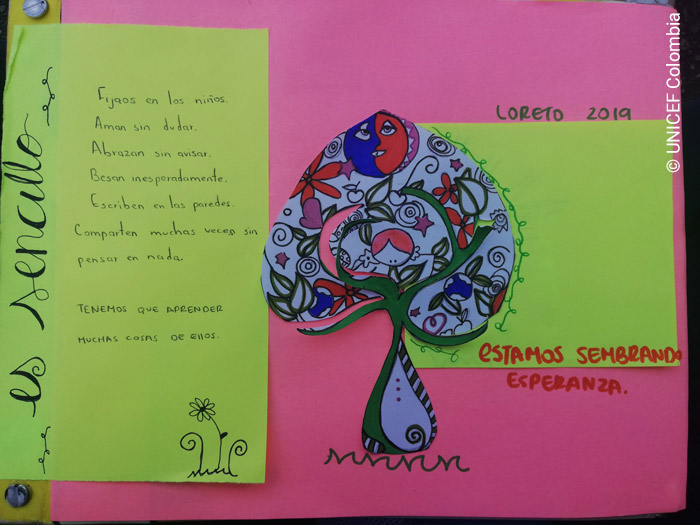 es sencillo
Fijaos en los niños.
Aman sin dudar.
Abrazan sin avisar.
Besan inesporadamente.
Escriben en las paredes.
Comparten muchas veces sin
pensar en nada.
TENEMOS QUE APRENDER
MUCHAS COSAS DE ELLOS.
LORETO 2019
ESTAMOS SEMBRANDO
ESPERANZA.
© UNICEF Colombia